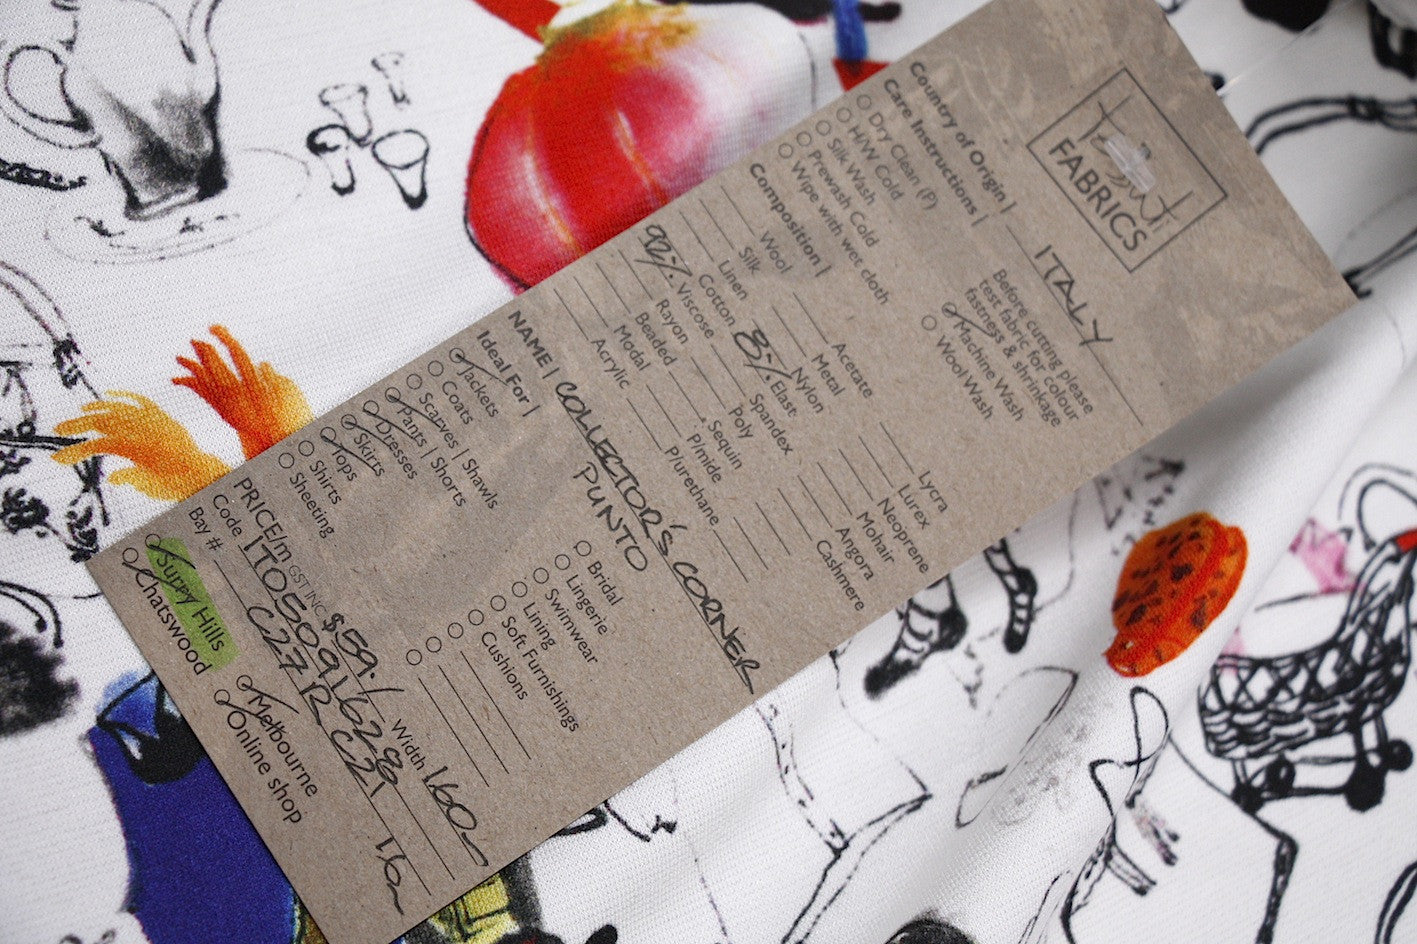 Tessuti
FABRICS
Country of Origin | ITALY
Care Instructions |
Before cutting please
test fabric for colour
fastness & shrinkage
Dry Clean (P)
H/W Cold
Silk Wash
Prewash Cold
Wipe with wet cloth
Machine Wash
Wool Wash
Composition |
Wool
Silk
Linen
Cotton
92% Viscose
Rayon
Beaded
Modal
Acrylic
Acetate
Metal
Nylon
8% Elast
Spandex
Poly
Sequin
P/mide
P/urethane
Lycra
Lurex
Neoprene
Mohair
Angora
Cashmere
NAME | COLLECTOR'S CORNER
PUNTO
Ideal For |
Jackets
Coats
Scarves | Shawls
Pants | Shorts
Dresses
Skirts
Tops
Shirts
Sheeting
Bridal
Lingerie
Swimwear
Lining
Soft Furnishings
Cushions
PRICE/m GST INC $59.-/ Width 160
Code
Bay # C27 R C21 1.6m
Surry Hills
Chatswood
Melbourne
Online shop